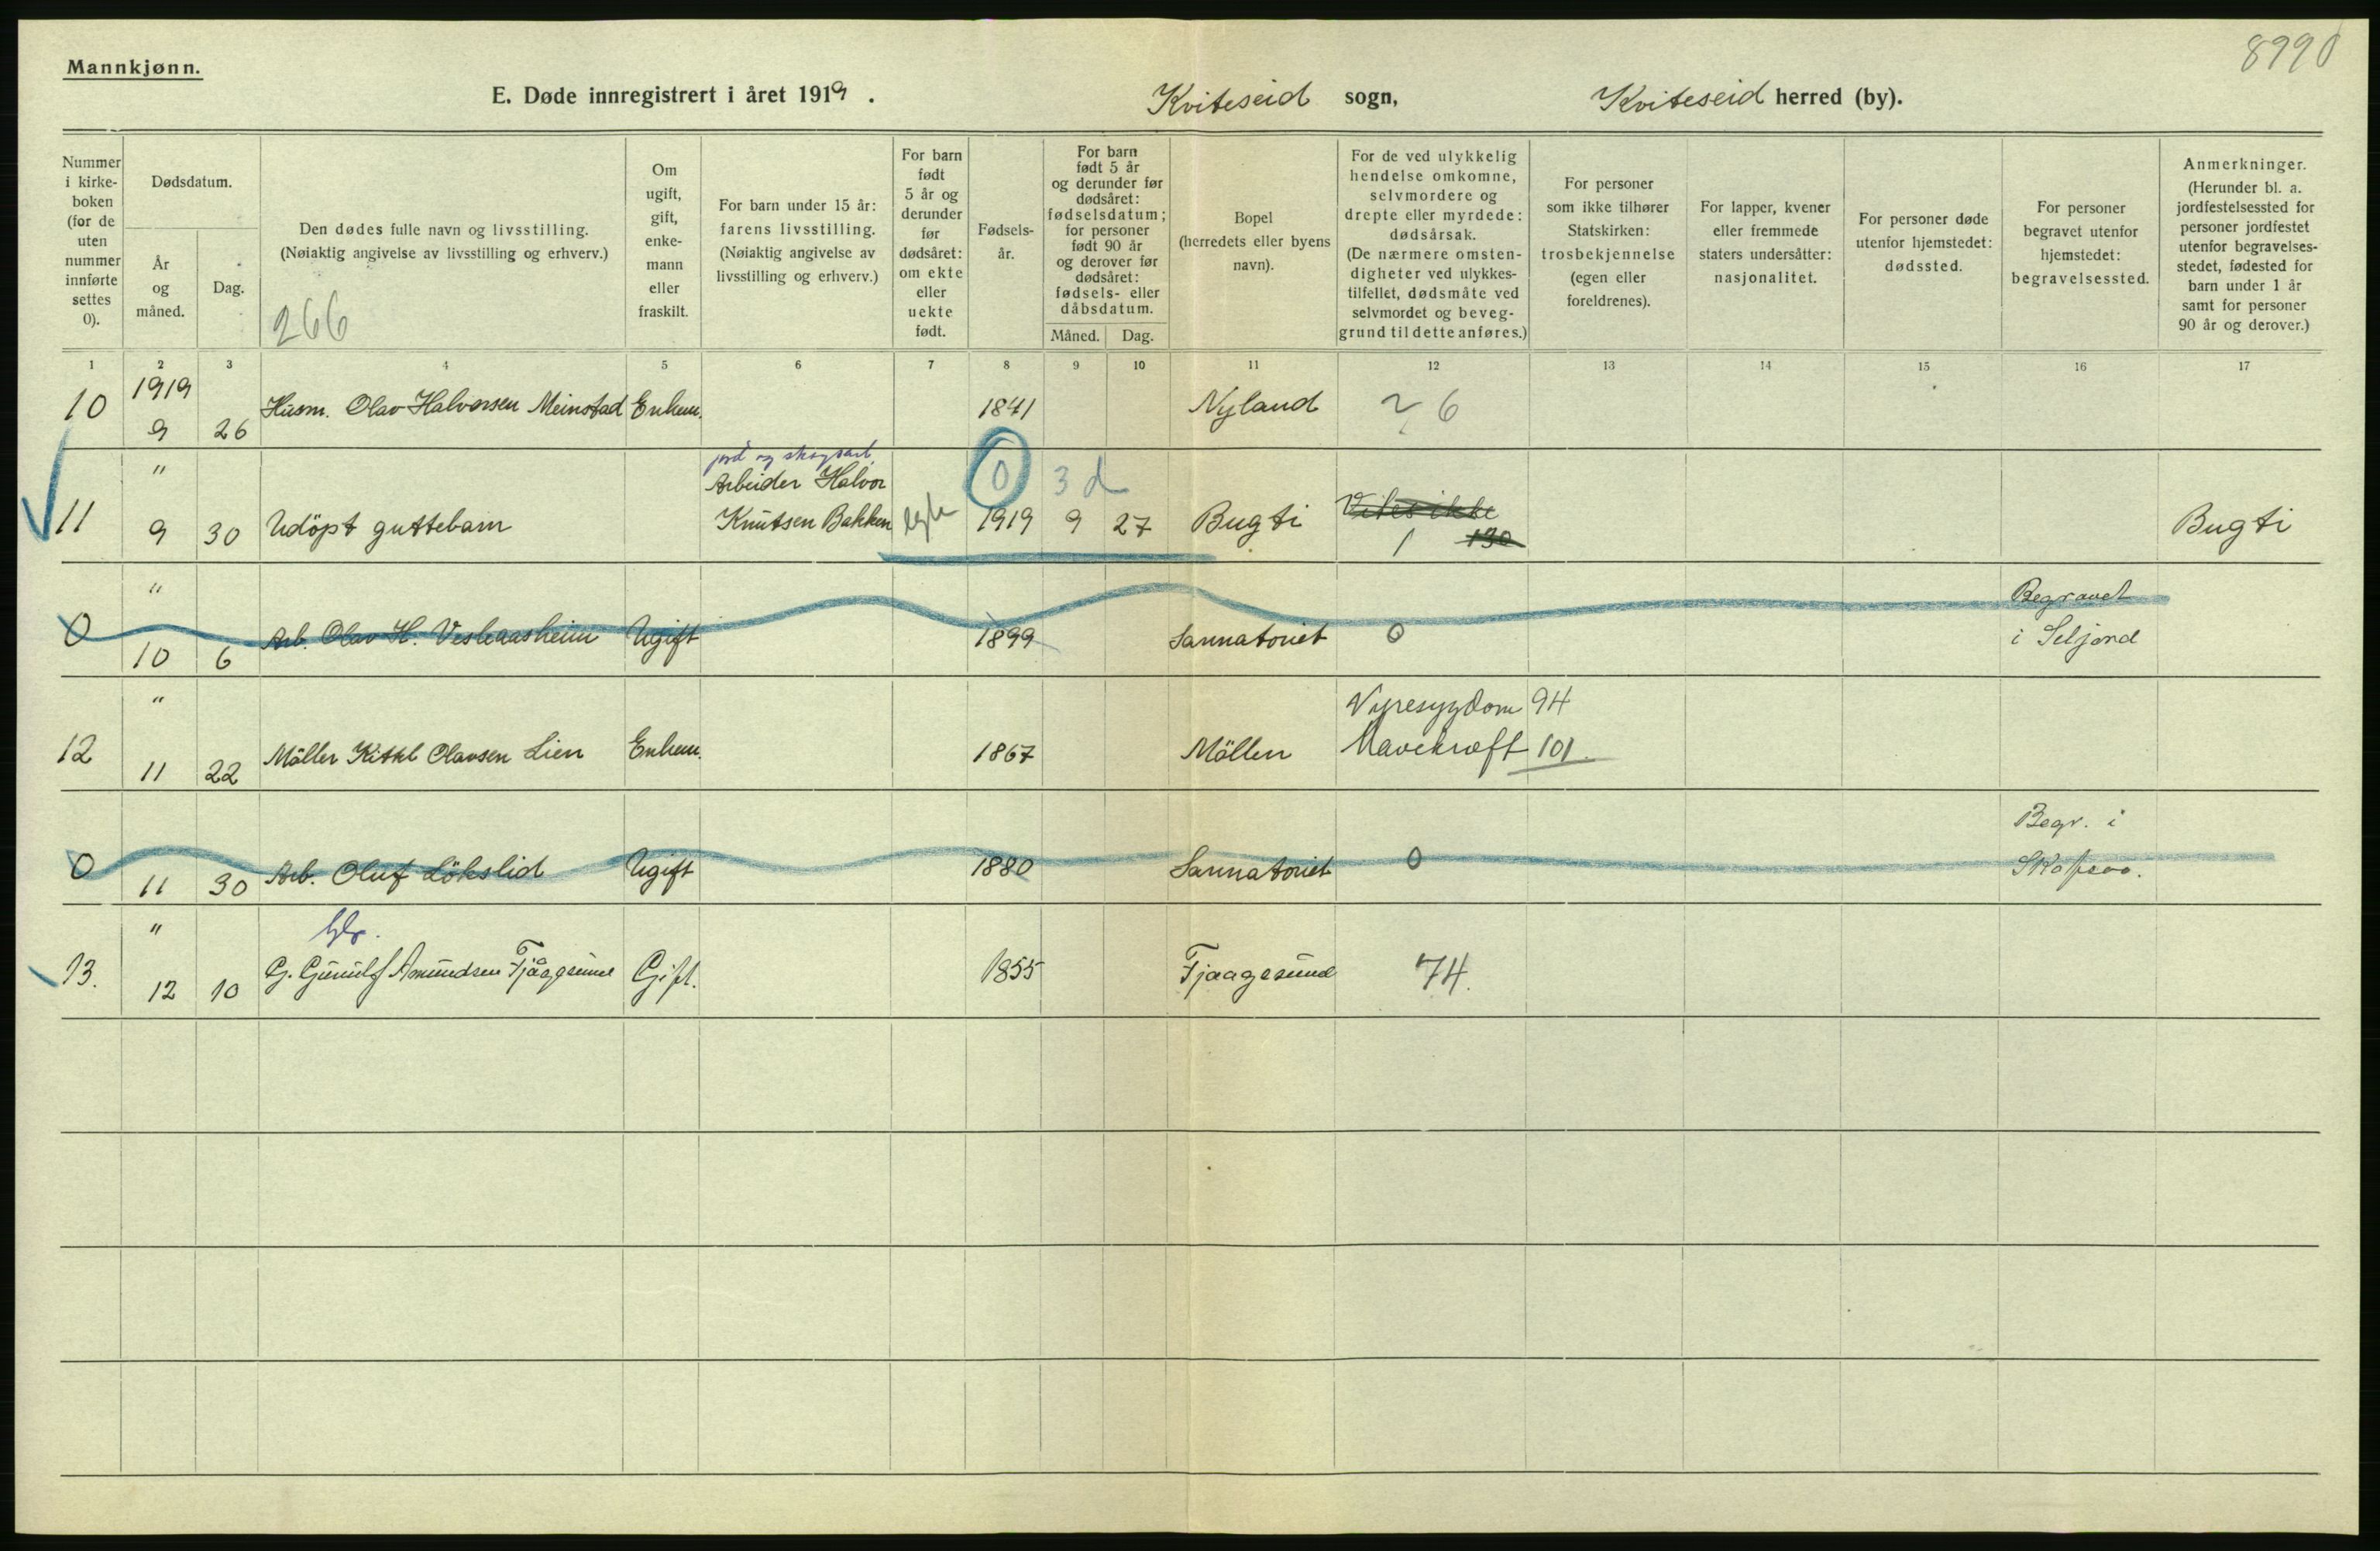 8990
Mannkjønn.
E. Døde innregistrert i året 1919. Kviteseid sogn, Kviteseid herred (by).
Nummer i kirke-boken (for de uten nummer innførte settes 0).
Dødsdatum.
År og måned.
Dag.
Den dødes fulle navn og livsstilling.
(Nøiaktig angivelse av livsstilling og erhverv.)
266
Om ugift, gift, enke-mann eller fraskilt.
For barn under 15 år: farens livsstilling. (Nøiaktig angivelse av livsstilling og erhverv.)
For barn født 5 år og derunder før dødsåret: om ekte eller uekte født.
Fødsels-år.
For barn født 5 år og derunder før dødsåret: fødselsdatum; for personer født 90 år og derover før dødsåret: fødsels- eller dåbsdatum.
Måned. Dag.
Bopel (herredets eller byens navn).
For de ved ulykkelig hendelse omkomne, selvmordere og drepte eller myrdede: dødsårsak. (De nærmere omsten-digheter ved ulykkes-tilfellet, dødsmåte ved selvmordet og beveg-grund til dette anføres.)
For personer som ikke tilhører Statskirken: trosbekjennelse (egen eller foreldrenes).
For lapper, kvener eller fremmede staters undersåtter: nasjonalitet.
For personer døde utenfor hjemstedet: dødssted.
For personer begravet utenfor hjemstedet: begravelsessted.
Anmerkninger. (Herunder bl. a. jordfestelsessted for personer jordfestet utenfor begravelses-stedet, fødested for barn under 1 år samt for personer 90 år og derover.)
1 2 3 4 5 6 7 8 9 10 11 12 13 14 15 16 17
1919
10 9 26 Husm. Olav Halvorsen Meinstad Enkem. 1841 Nyland 26
" jord og skogsarb.
Arbeider Halvor 0 3 d
11 9 30 Udöpt guttebarn Knutsen Bakken egte 1919 9 27 Bugti Vites ikke Bugti
1 130
" Begravet
0 10 6 Arb. Olav H. Veslaasheim Ugift 1899 Sannatoriet 0 i Seljord
" Nyresygdom 94
12 11 22 Möller Kitil Olavsen Lien Enkem. 1867 Möllen Mavekræft 101.
Begr. i
0 11 30 Arb. Oluf Lökslid Ugift 1880 Sannatoriet 0
"
13. 12 10 G. Gunulf Amundsen Fjågesund Gift. 1855 Fjaagesund 74.